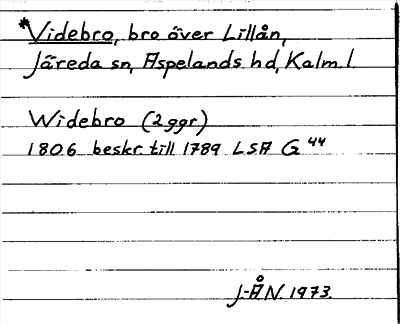 *Videbro, bro över Lillån,
Järeda sn, Aspelands hd, Kalm. l.
Widebro (2 ggr)
1806 beskr. till 1789 LSA G 44
J-ÅN. 1973.